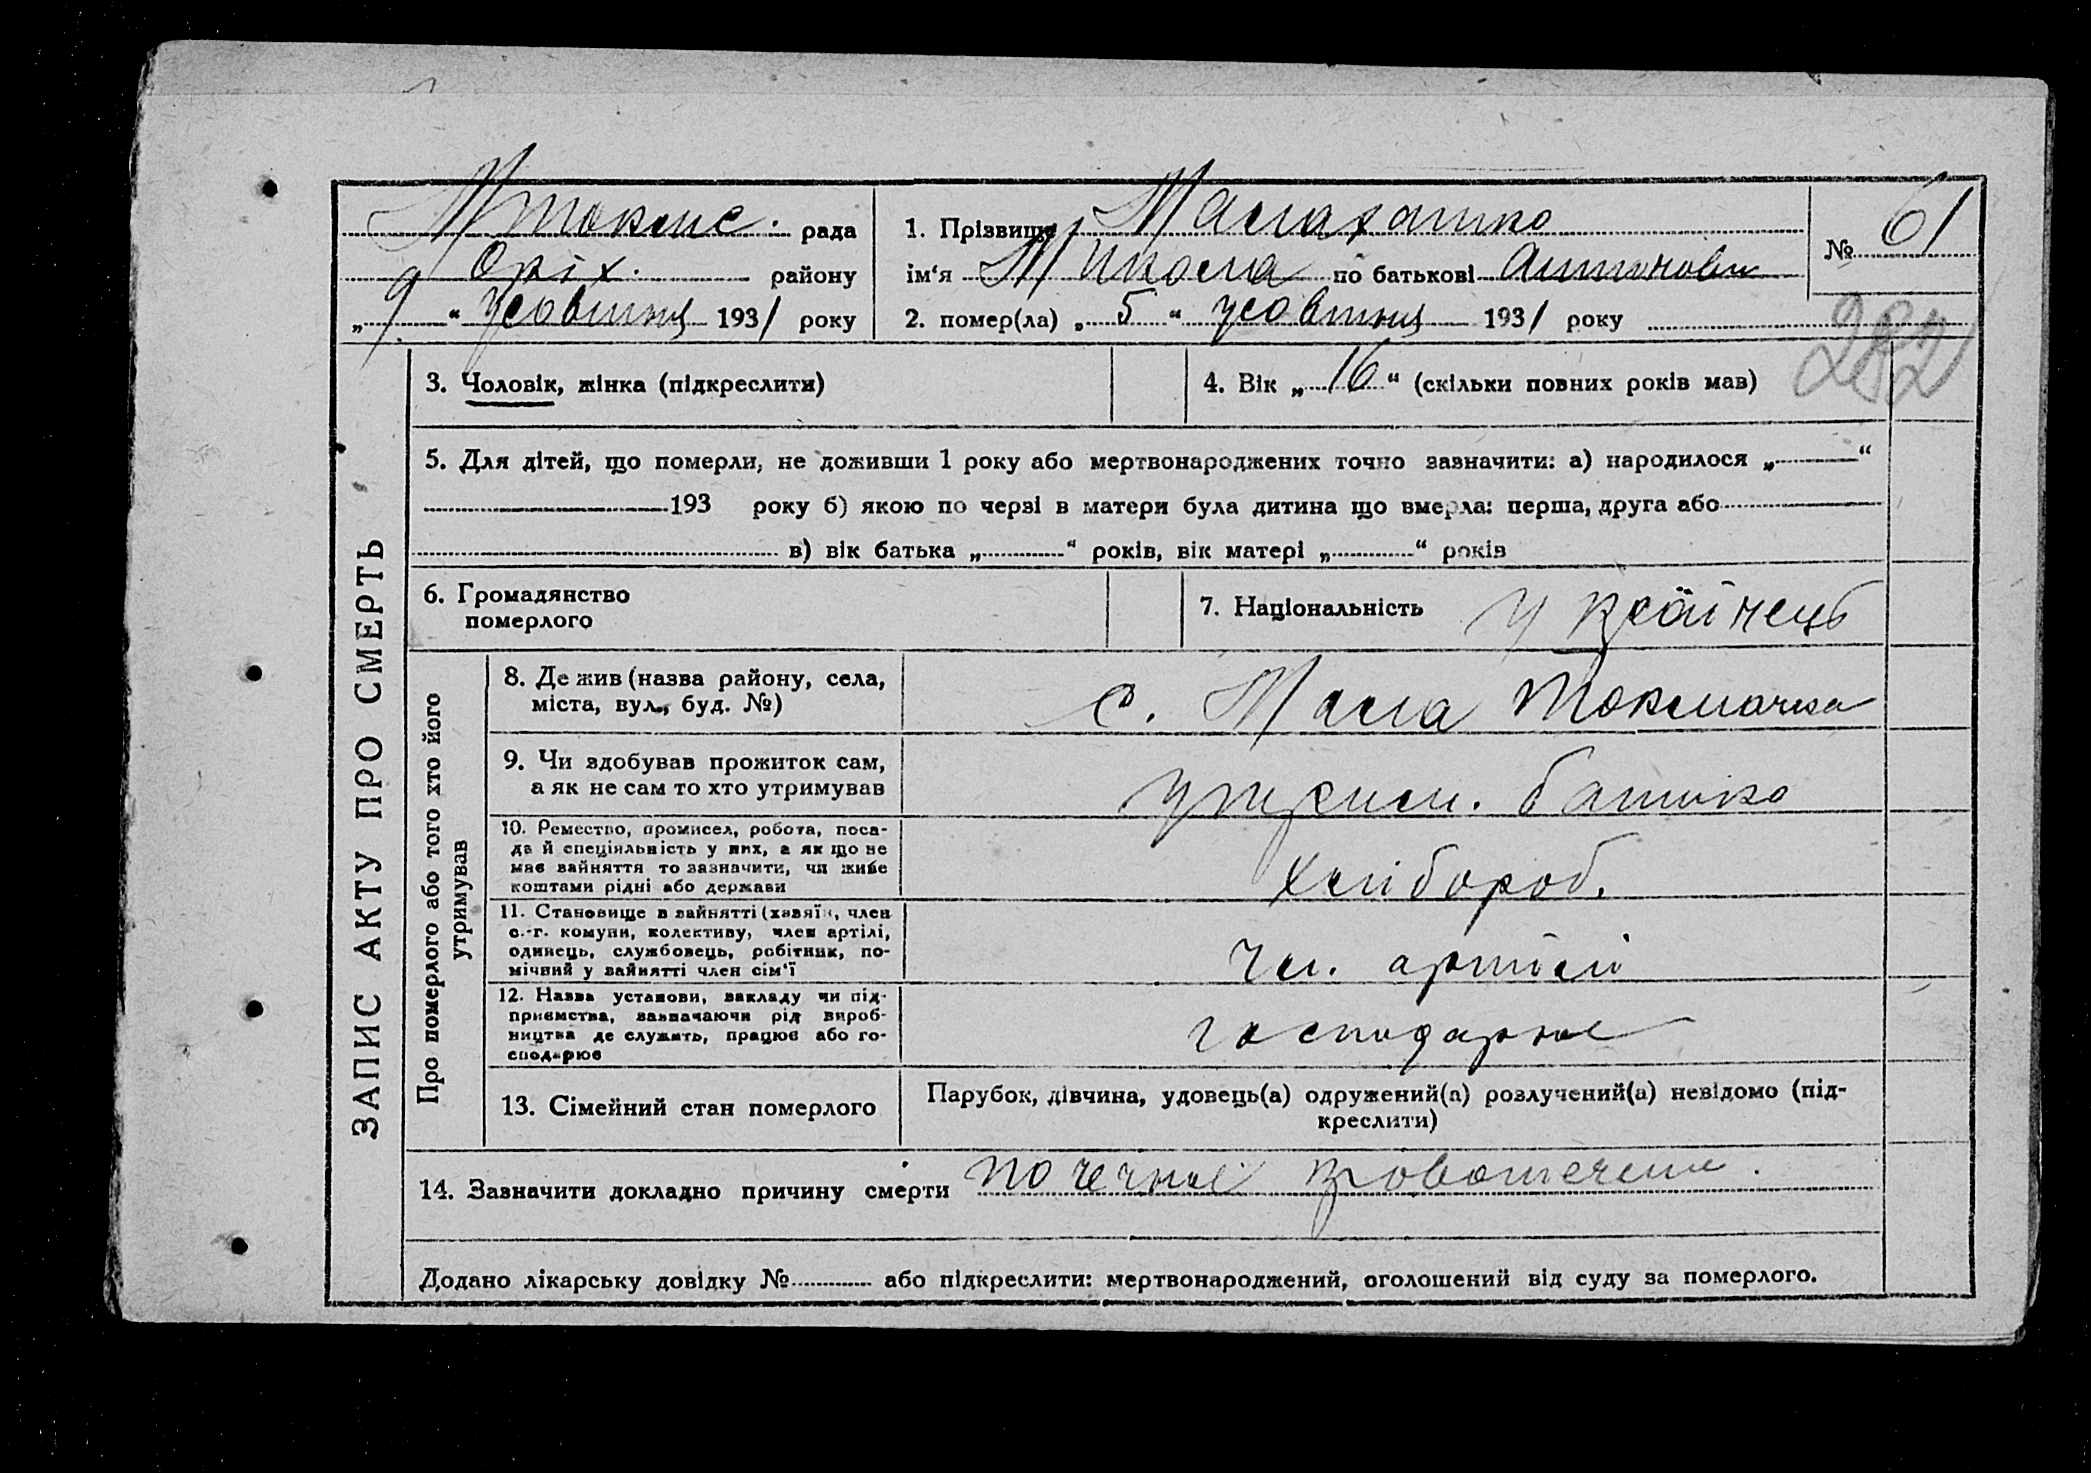 М Токмс. рада
Оріх. району
„ 9 “ жовтня 1931 року
1. Прізвище Малахатко
ім‘я Микола по батькові Антонови
2. помер(ла) „ 5 “ жовтня 1931 року
№ 61
282
ЗАПИС АКТУ ПРО СМЕРТЬ
3. Чоловік, жінка (підкреслити)
4. Вік „ 16 “ (скільки повних років мав)
5. Для дітей, що померли, не доживши 1 року або мертвонароджених точно зазначити: а) народилося „ “
193 року б) якою по черзі в матери була дитина що вмерла: перша, друга або
в) вік батька „ “ років, вік матері „ “ років
6. Громадянство
померлого
7. Національність українець
Про померлого або того хто його
утримував
8. Де жив (назва району, села,
міста, вул., буд. №)
с. Мала Токмачка
9. Чи здобував прожиток сам,
а як не сам то хто утримував
утрим. батько
10. Ремество, промисел, робота, поса-
да й спеціяльність у них, а як що не
має зайняття то зазначити, чи живе
коштами рідні або держави
хлібороб.
11. Становище в зайнятті (хазяїн, член
с.-г. комуни, колективу, член артілі,
одинець, службовець, робітник, по-
мічний у зайнятті член сім‘ї
чл. артілі
12. Назва установи, закладу чи під-
приємства, зазначаючи рід вироб-
ництва де служить, працює або го-
сподарює
13. Сімейний стан померлого
Парубок, дівчина, удовець(а) одружений(а) розлучений(а) невідомо (під-
креслити)
14. Зазначити докладно причину смерти почечное кровотечение.
Додано лікарську довідку № або підкреслити: мертвонароджений, оголошений від суду за померлого.